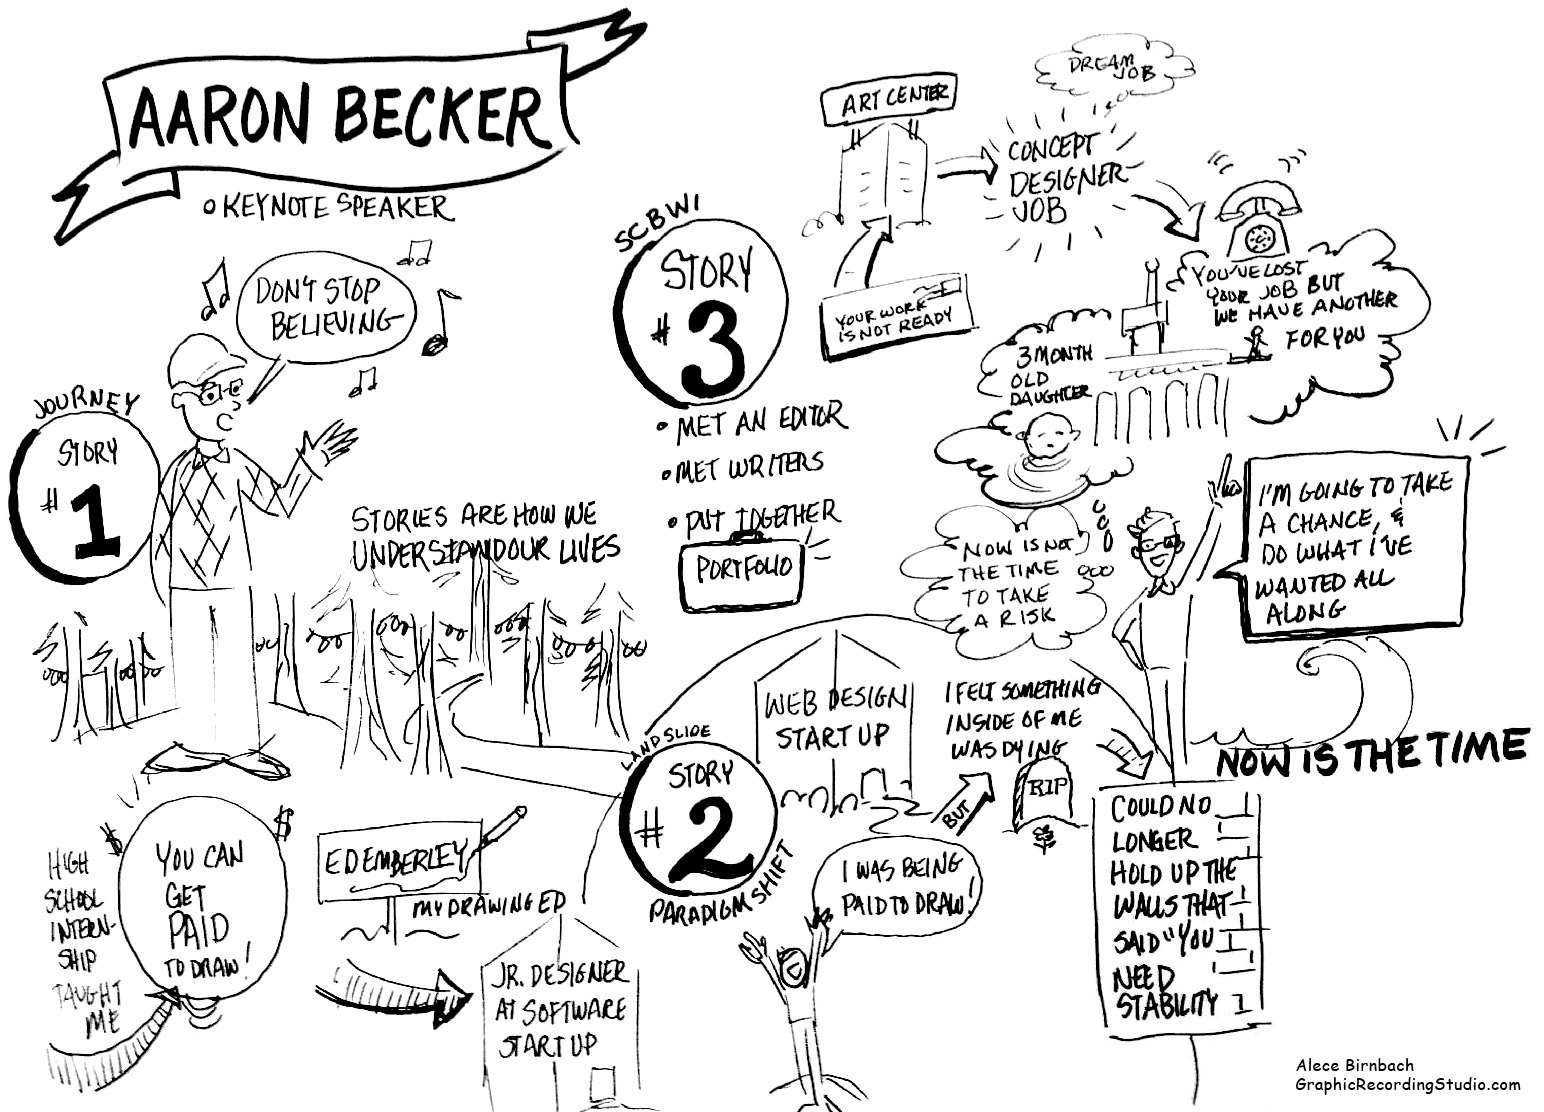 AARON BECKER
KEYNOTE SPEAKER
DON'T STOP
BELIEVING
JOURNEY
STORY
# 1
STORIES ARE HOW WE
UNDERSTAND OUR LIVES
HIGH
SCHOOL
INTERN-
SHIP
TAUGHT
ME
$
$
YOU CAN
GET
PAID
TO DRAW!
ED EMBERLEY
MY DRAWING ED
JR. DESIGNER
AT SOFTWARE
START UP
LANDSLIDE
STORY
# 2
PARADIGM SHIFT
WEB DESIGN
START UP
I WAS BEING
PAID TO DRAW!
BUT
I FELT SOMETHING
INSIDE OF ME
WAS DYING
RIP
SCBWI
STORY
# 3
MET AN EDITOR
MET WRITERS
PUT TOGETHER
PORTFOLIO
YOUR WORK
IS NOT READY
ART CENTER
CONCEPT
DESIGNER
JOB
DREAM
JOB
YOU'VE LOST
YOUR JOB BUT
WE HAVE ANOTHER
FOR YOU
3 MONTH
OLD
DAUGHTER
NOW IS NOT
THE TIME
TO TAKE
A RISK
I'M GOING TO TAKE
A CHANCE, &
DO WHAT I'VE
WANTED ALL
ALONG
NOW IS THE TIME
COULD NO
LONGER
HOLD UP THE
WALLS THAT
SAID "YOU
NEED
STABILITY
Alece Birnbach
GraphicRecordingStudio.com